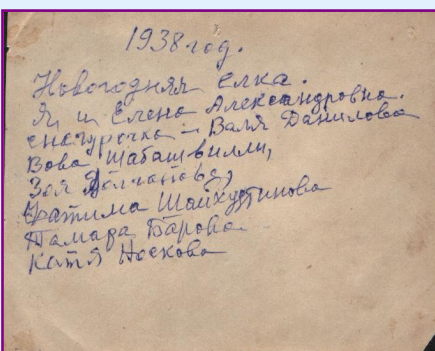 1938 год.
Новогодняя елка.
Я, и Елена Александровна.
снегурочка - Валя Данилова
Вова Шабашвилли,
Зоя
Фатима Шайхутинова
Тамара Барова.
Катя Носкова